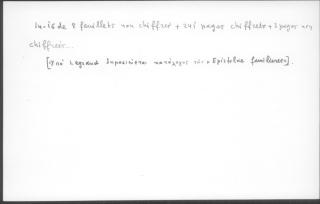 In-16 de 8 feuillets non chiffrés + 241 pages chiffrées + 3 pages non
chiffrées...
[Υπό Legrand δημοσιεύεται κατάλογος των « Epistolae familiares].